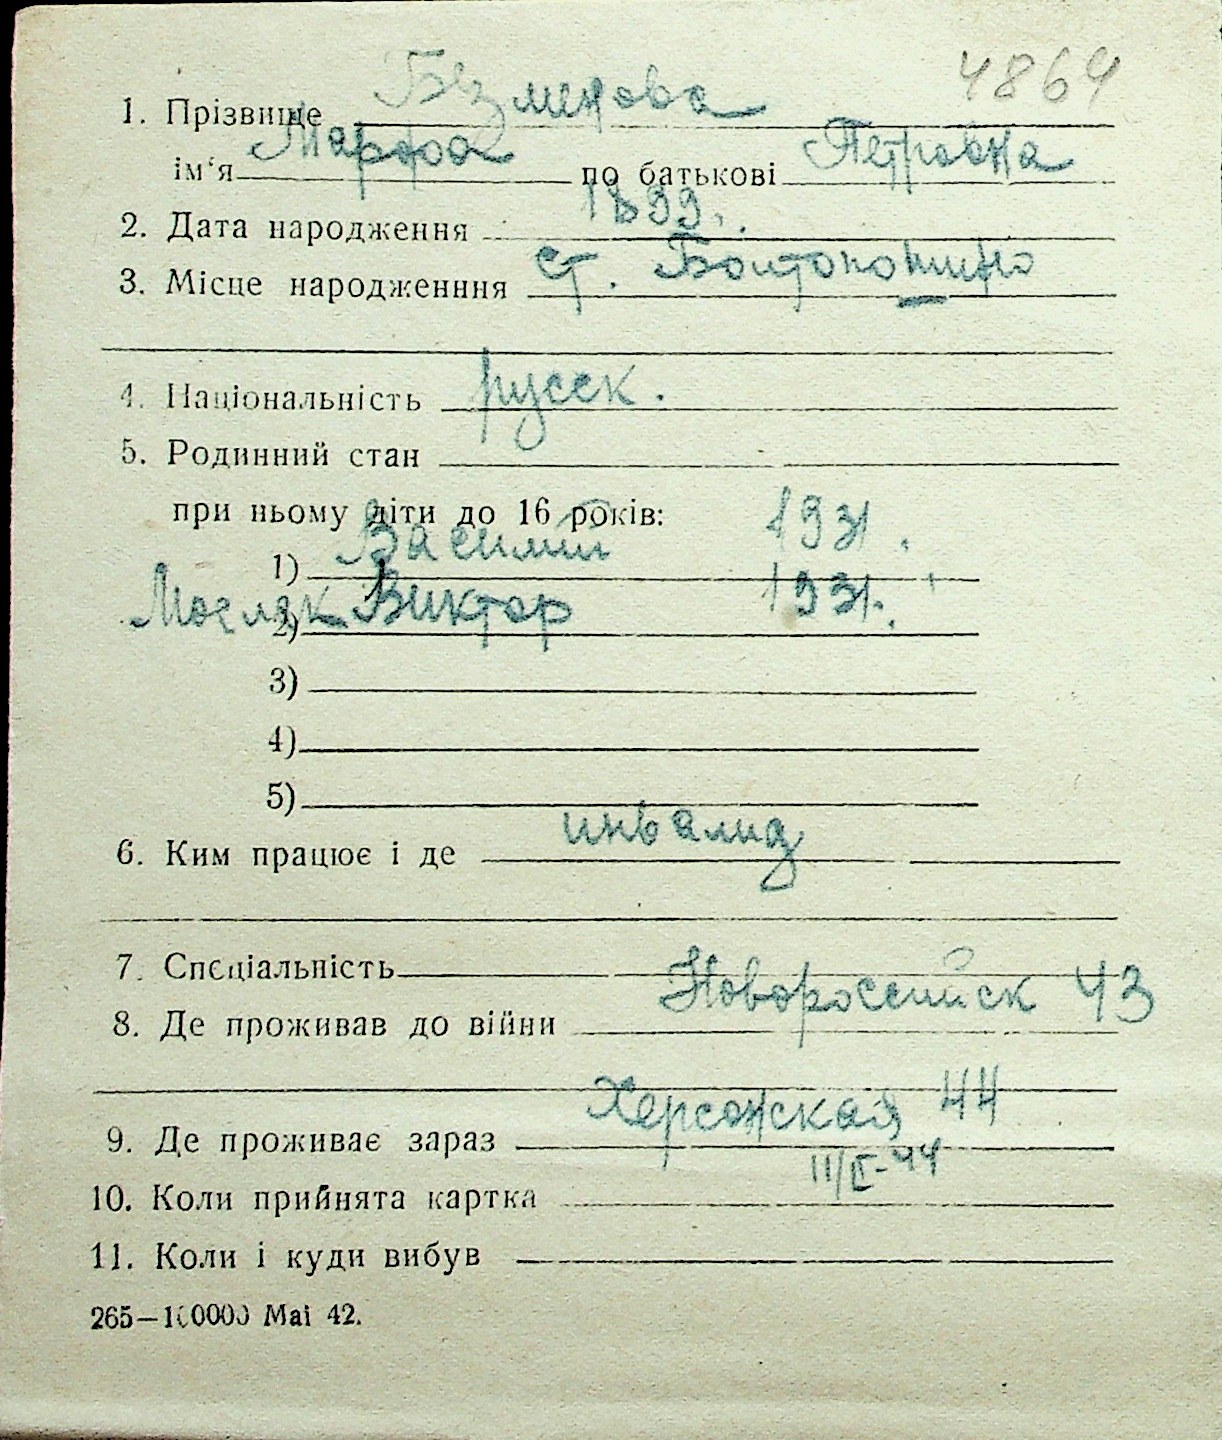 4864
1. Прізвище Безменова
ім‘я Марфа по батькові Петровна
2. Дата народження 1899.
3. Місце народженння ст.
4. Національність русск.
5. Родинний стан
при ньому діти до 16 років:
1) Василий 1931.
2) Виктор 1931.
3)
4)
5)
6. Ким працює і де инвалид
7. Спеціальність
8. Де проживав до війни Новороссийск 43
9. Де проживає зараз Херсонская 44
10. Коли прийнята картка
11. Коли і куди вибув
265—100000 Mai 42.